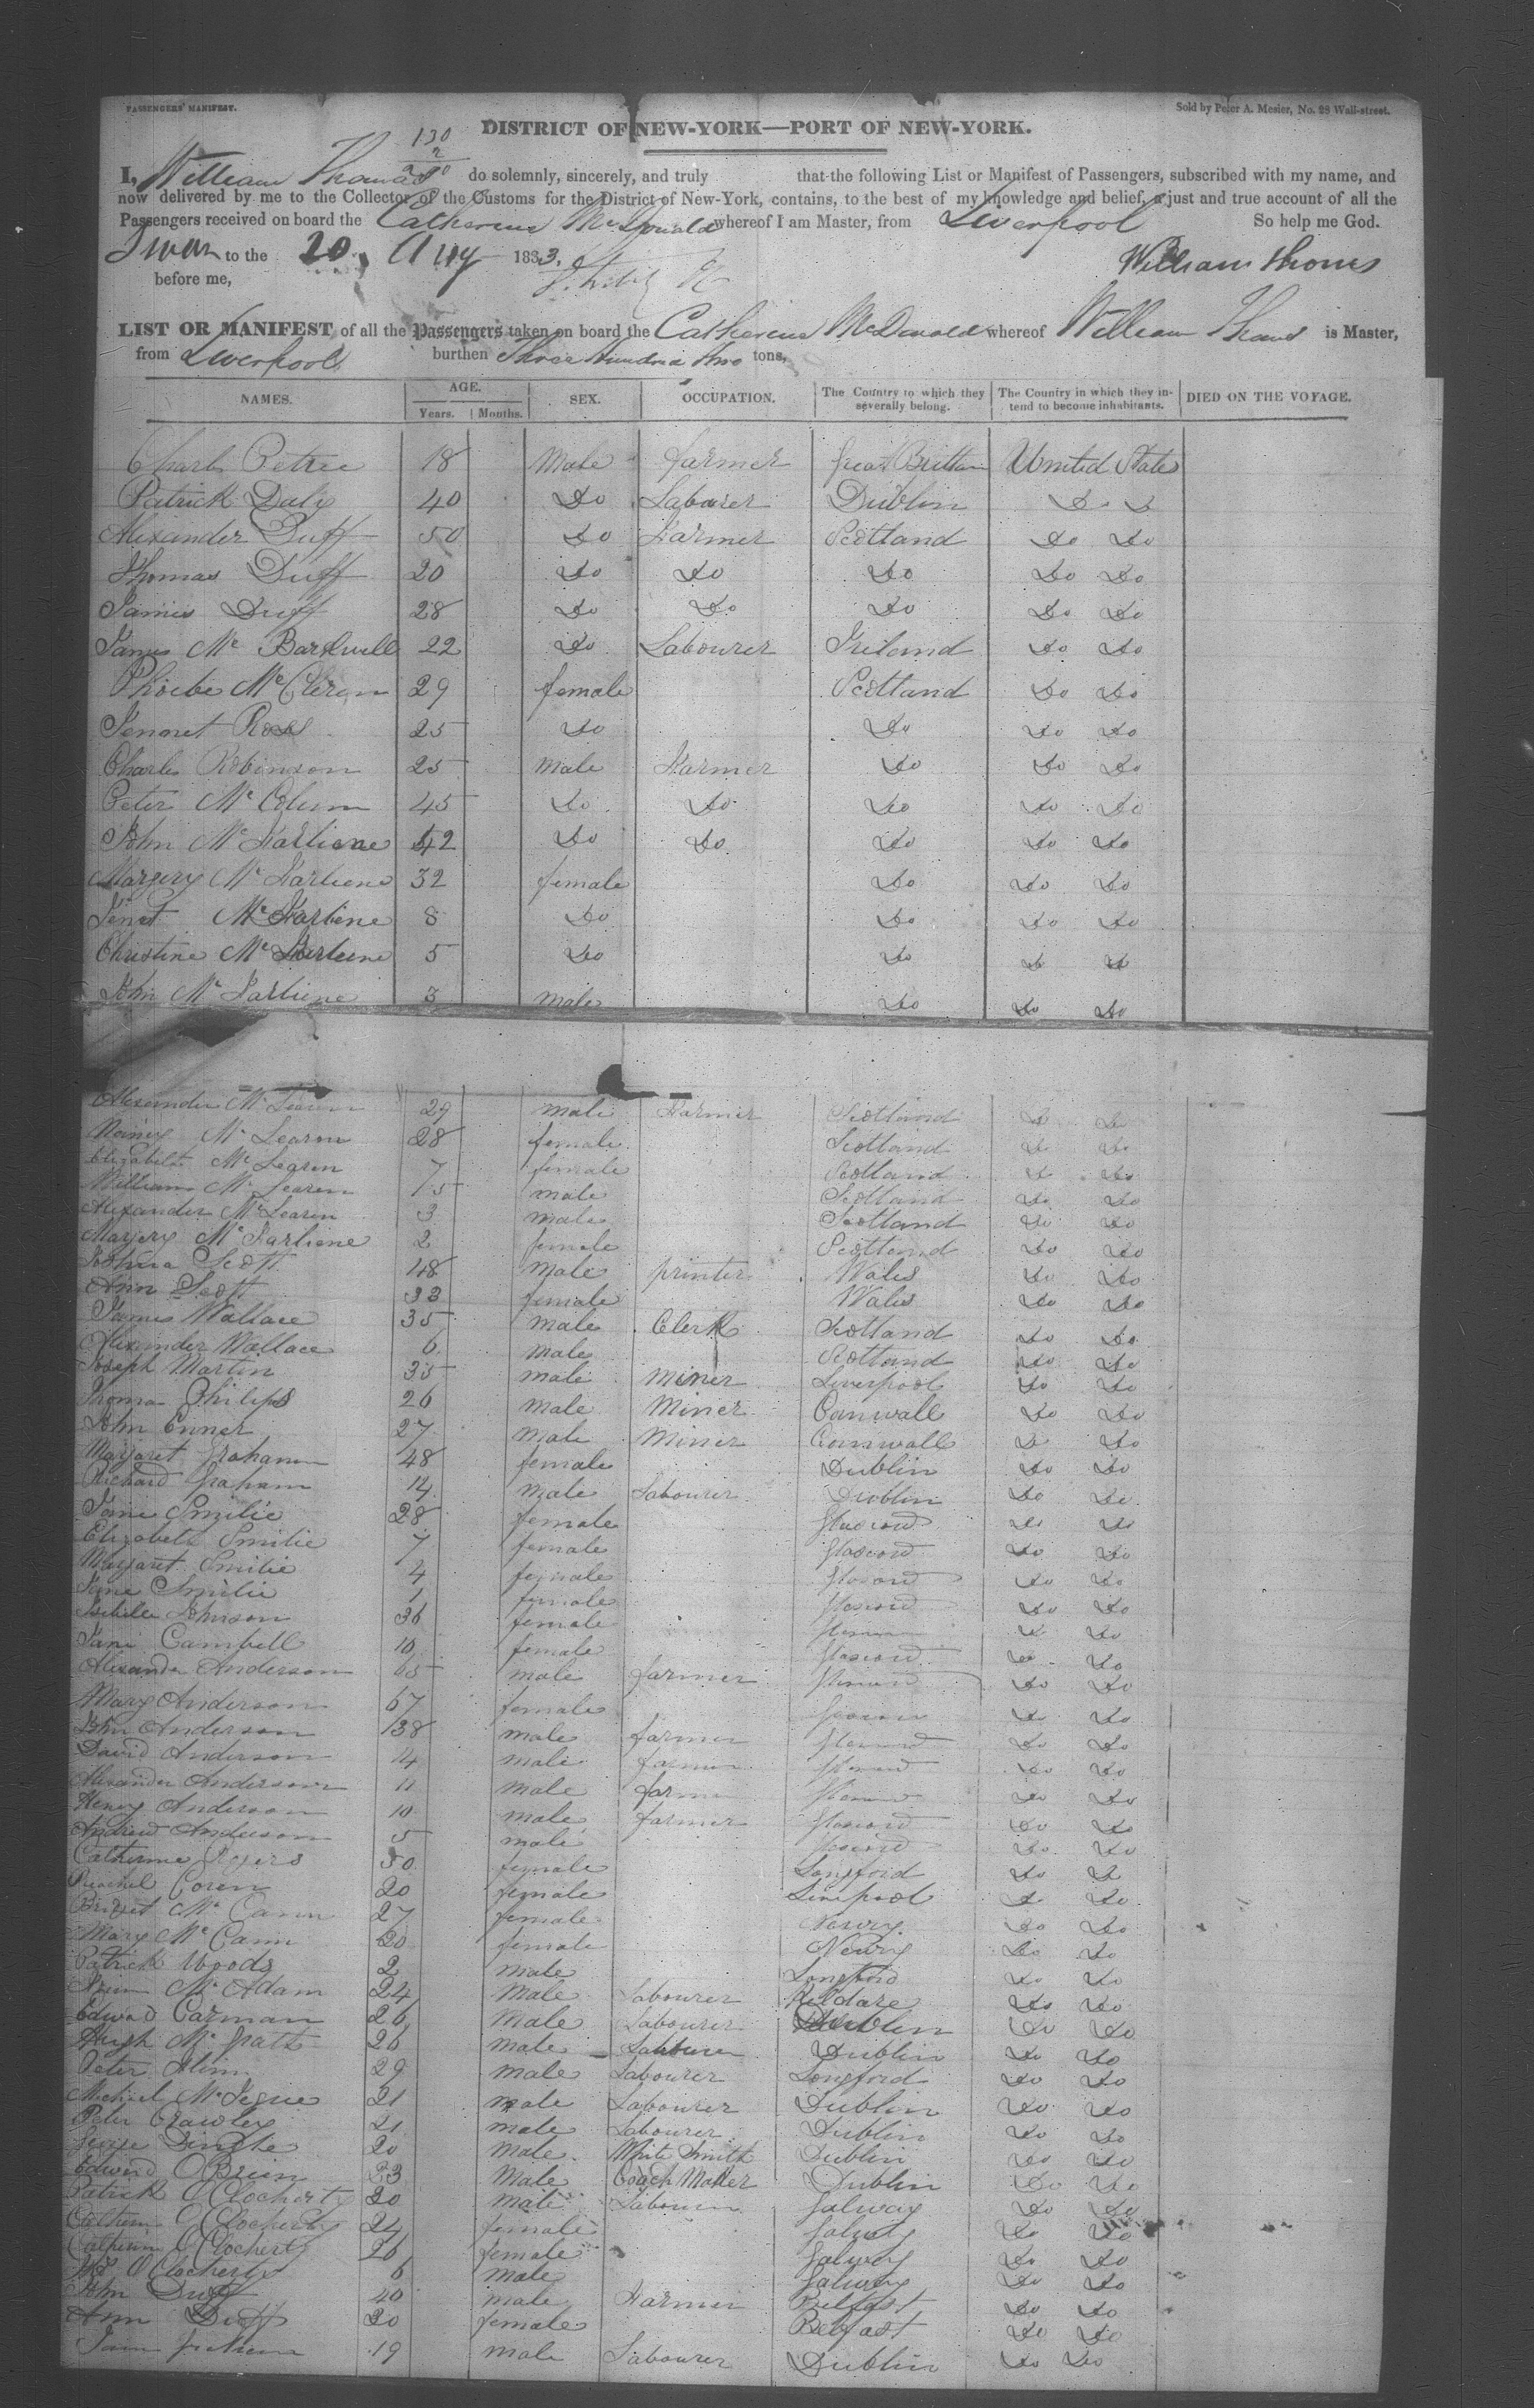 PASSENGERS' MANIFEST.
Sold by Peter A. Mesier, No. 28 Wall-street.
130
2
DISTRICT OF NEW-YORK—PORT OF NEW-YORK.
I, William Thomas do solemnly, sincerely, and truly that the following List or Manifest of Passengers, subscribed with my name, and
now delivered by me to the Collector of the Customs for the District of New-York, contains, to the best of my knowledge and belief, a just and true account of all the
Passengers received on board the Catherine McDonald whereof I am Master, from Liverpool So help me God.
Swan to the 20. Aug 1833.
William Thoms
before me,
LIST OR MANIFEST of all the Passengers taken on board the Catherine McDonald whereof William Thoms is Master,
from Liverpool burthen Three Hundred Two tons,
NAMES. AGE. SEX. OCCUPATION. The Country to which they severally belong. The Country in which they intend to become inhabitants. DIED ON THE VOYAGE.
Years. Months.
Charls Petrie 18 Male farmer Great Brittan United State
Patrick Daly 40 Do Labourer Dublin Do Do
Alexander Duff 50 Do Farmer Scotland Do Do
Thomas Duff 20 Do Do Do Do Do
James Duff 28 Do Do Do Do Do
James Mc 22 Do Labourer Ireland Do Do
Phoebe Mc 29 female Scotland Do Do
Jennet Ross 25 Do Do Do Do
Charls Robinson 25 Male Farmer Do Do Do
Peter Mc Colum 45 Do Do Do Do Do
John Mc Farliene 42 Do Do Do Do Do
Margery Mc Farliene 32 female Do Do Do
Jenet Mc Farliene 8 Do Do Do Do
Christine Mc Farliene 5 Do Do Do Do
John Mc Farliene 3 male Do Do Do
Alexander Mc Learen 29 male Farmer Scotland Do Do
Nancy Mc Learen 28 female Scotland Do Do
Elizabeth Mc Learen 7 female Scotland Do Do
William Mc Learen 5 male Scotland Do Do
Alexander Mc Learen 3 male Scotland Do Do
Marjery Mc Farliene 2 female Scotland Do Do
Joshua Scott 48 male printer Wales Do Do
Ann Scott 33 female Wales Do Do
James Wallace 35 male Clerk Scotland Do Do
Alexander Wallace 6 male Scotland Do Do
Joseph Martin 35 male Miner Liverpool Do Do
Thomas Philips 26 male Miner Conwall Do Do
John Enner 27 male Miner Cornwall Do Do
Margaret Graham 48 female Dublin Do Do
Richard Graham 14 male Labourer Dublin Do Do
Jane Smilie 28 female Glascow Do Do
Elizabeth Smilie 7 female Glascow Do Do
Margaret Smilie 4 female Glascow Do Do
Jane Smilie 1 female Glascow Do Do
Isabella Johnson 36 female Do Do
Jane Campbell 10 female Glascow Do Do
Alexander Anderson 65 male farmer Do Do
Mary Anderson 67 female Do Do
John Anderson 38 male farmer Do Do
David Anderson 14 male farmer Do Do
Alexander Anderson 11 male farmer Do Do
Henry Anderson 10 male farmer Glascow Do Do
Andrew Anderson 5 male Glascow Do Do
Catherine 50 female Longford Do Do
Coren 20 female Liverpool Do Do
Bridget Mc Cann 27 female Newry Do Do
Mary Mc Cann 20 female Newry Do Do
Patrick Woods 2 male Longford Do Do
Mc Adam 24 Male Labourer Kildare Do Do
Edward Carman 26 Male Labourer Dublin Do Do
Hugh Mc Grath 26 male Labourer Dublin Do Do
Peter 29 male Labourer Longford Do Do
Michael Mc 21 male Labourer Dublin Do Do
Peter Crawley 21 male Labourer Dublin Do Do
George Dingle 20 Male White Smith Dublin Do Do
Edward OBrien 33 Male Coach Maker Dublin Do Do
Patrick OClocherty 20 male Labourer Galway Do Do
Catherine OClocherty 24 female Galway Do Do
Catherine OClocherty 26 female Galway Do Do
OClocherty 6 male Galway Do Do
John Duff 40 male Farmer Belfast Do Do
Ann Duff 20 female Belfast Do Do
19 male Labourer Dublin Do Do